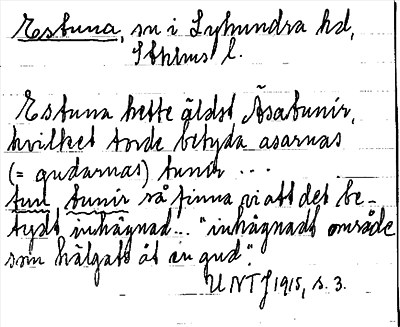 Estuna, sn i Lyhundra hd,
Sthlms l.
Estuna hette äldst Äsatunir,
hvilket torde betyda asarnas
(= gudarnas) tunir ...
tun, tunir så finna vi att det be-
tydt inhägnad... "inhägnadt område
som hälgats åt en gud".
UNT J 1915, s. 3.